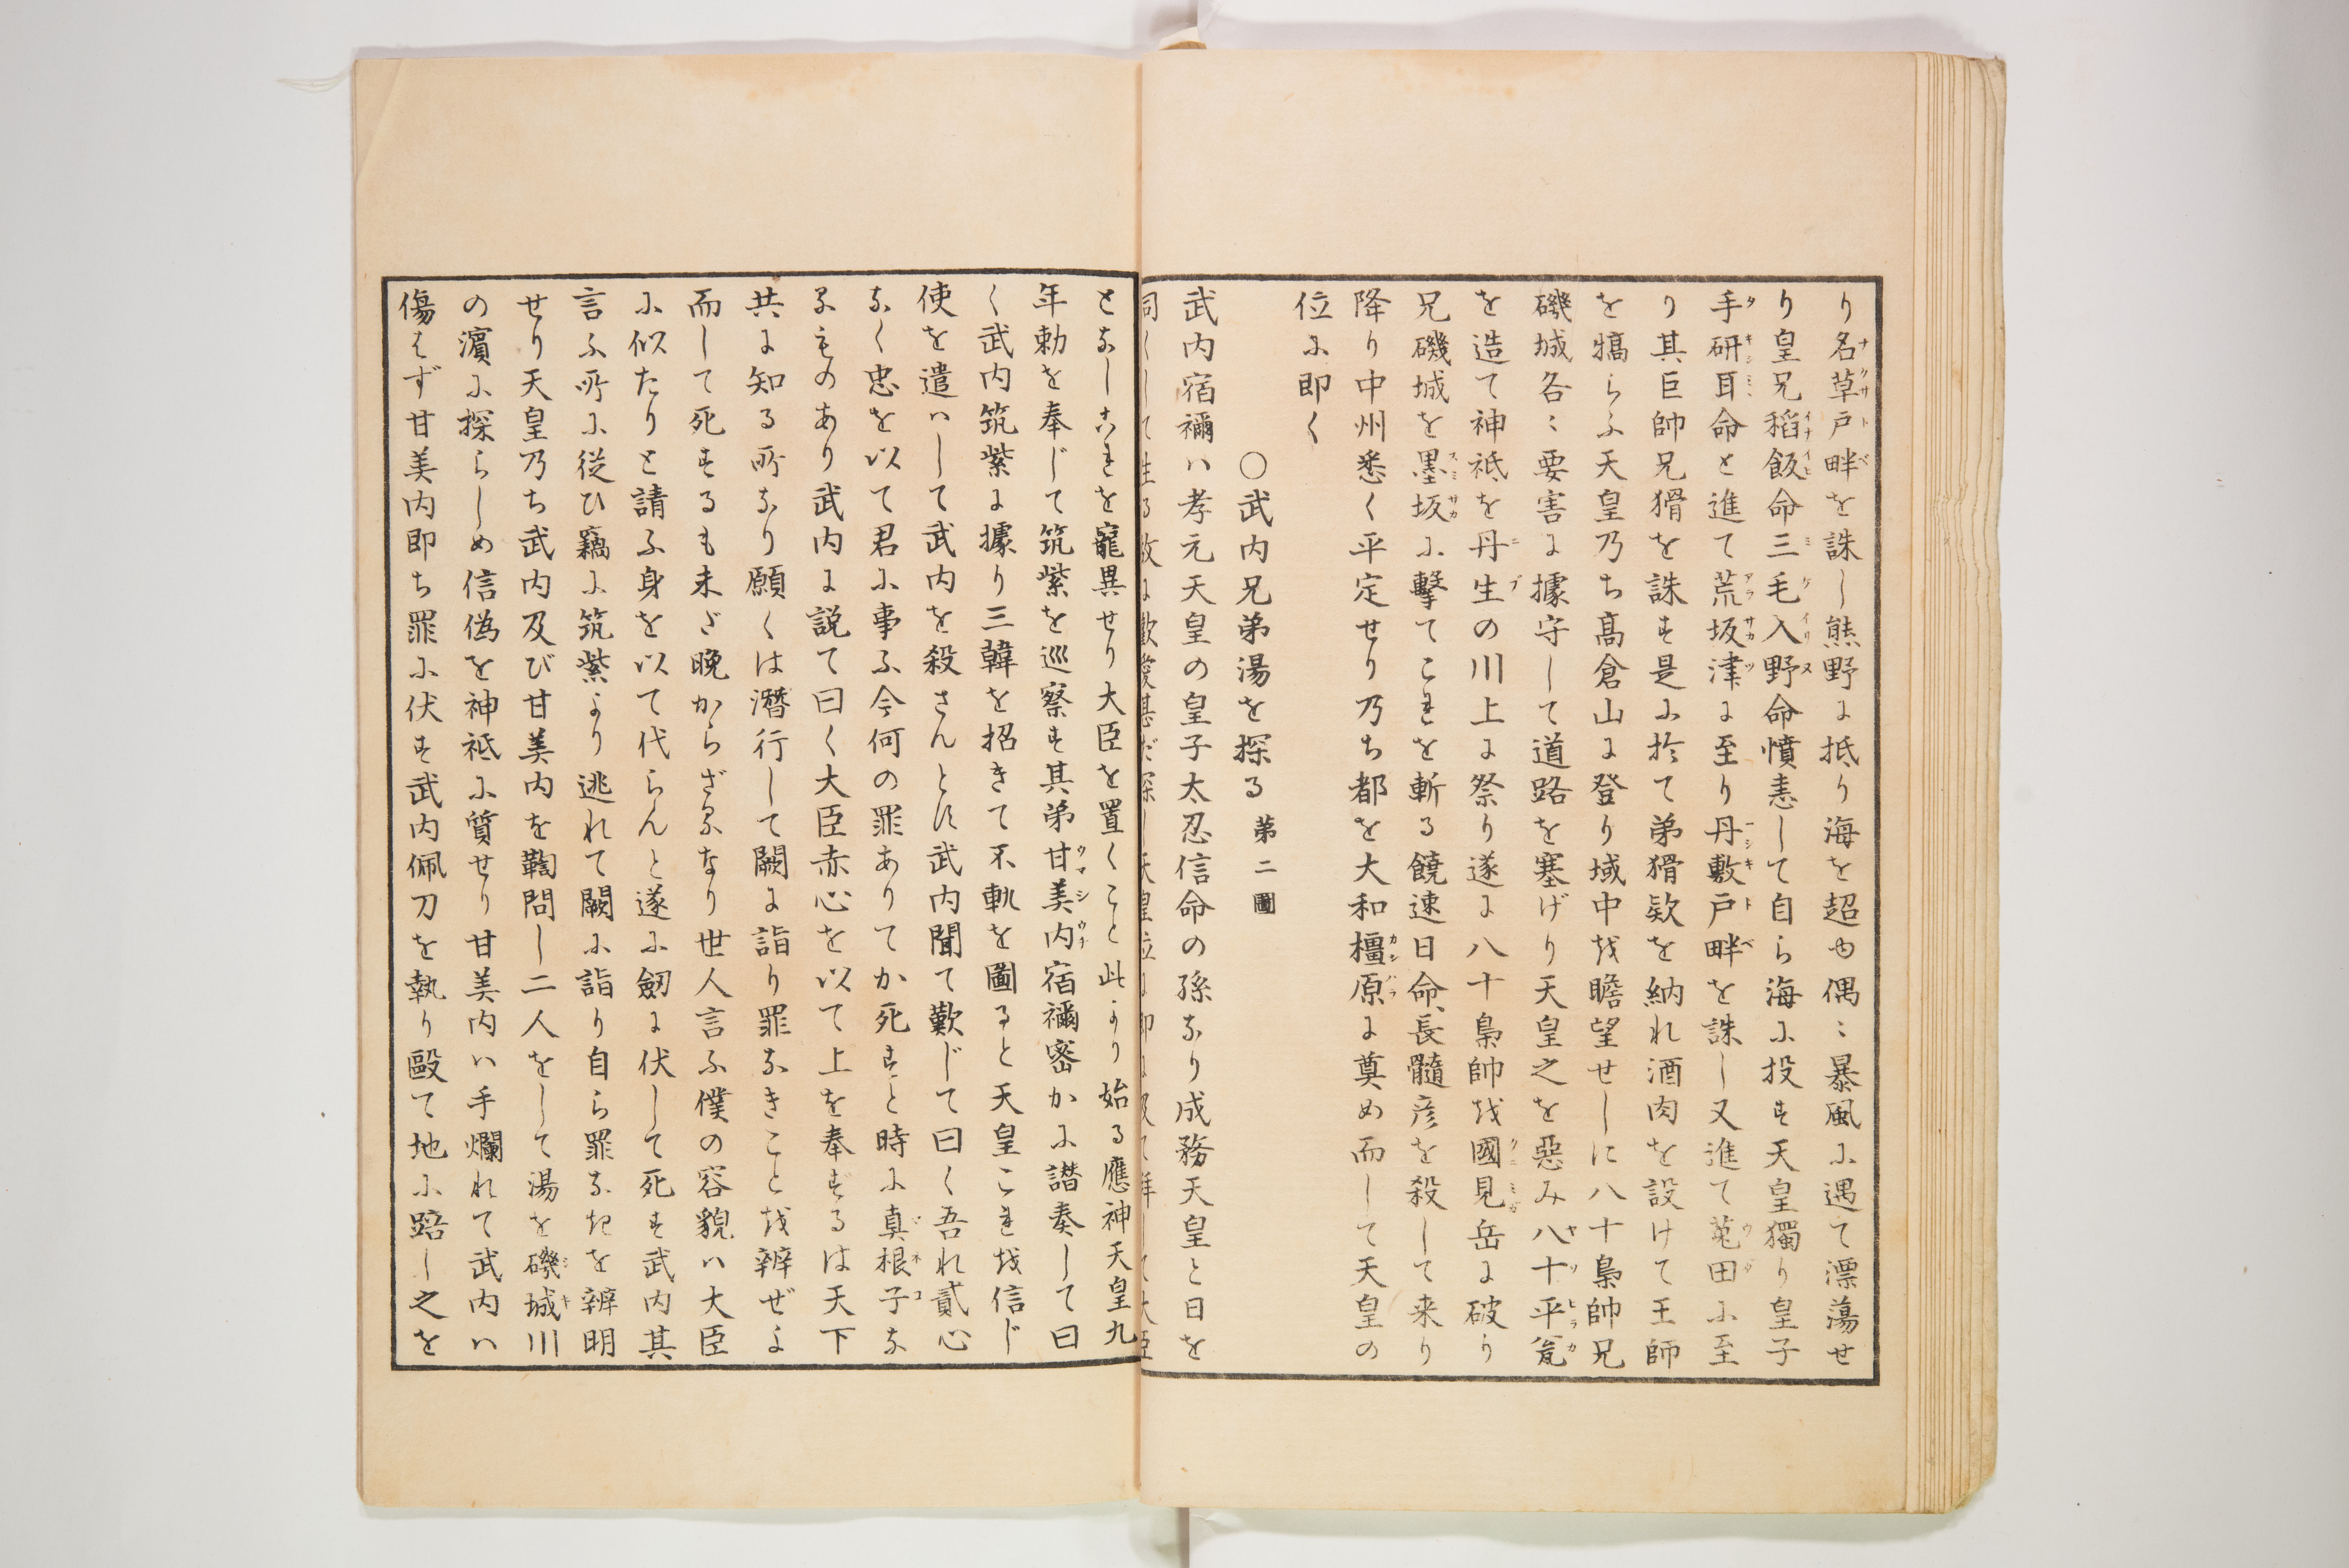 り名草戸畔を誅し熊野に抵り海を超ゆ偶〻暴風に遇て漂蕩せ
り皇兄稻飯命三毛入野命憤恚して自ら海に投す天皇獨り皇子
手研耳命と進て荒坂津に至り丹敷戸畔を誅し又進て菟田に至
り其巨帥兄猾を誅す是に於て弟猾欵を納れ酒肉を設けて王師
を犒らふ天皇乃ち髙倉山に登り域中を瞻望せしに八十梟帥兄
磯城各〻要害に據守して道路を塞げり天皇之を惡み八十平瓮
を造て神祇を丹生の川上に祭り遂に八十梟帥を國見岳に破り
兄磯城を墨坂に擊てこれを斬る饒速日命長髓彦を殺して来り
降り中州悉く平定せり乃ち都を大和橿原に奠め而して天皇の
位に即く
〇武内兄弟湯を探る 第二圖
武内宿禰ハ孝元天皇の皇子太忍信命の孫なり成務天皇と日を
同くして生る故に歡愛甚だ深し天皇位に即に及て拜して大臣
となしこれを寵異せり大臣を置くこと此より始る應神天皇九
年勅を奉じて筑紫を巡察す其弟甘美内宿禰密かに譖奏して曰
く武内筑紫に據り三韓を招きて不軌を圖ると天皇これを信じ
使を遣ハして武内を殺さんとす武内聞て歎じて曰く吾れ貳心
なく忠を以て君に事ふ今何の罪ありてか死すと時に真根子な
るものあり武内に説て曰く大臣赤心を以て上を奉ずるは天下
共に知る所なり願くは潛行して闕に詣り罪なきことを辨ぜよ
而して死するも未ざ晩からざるなり世人言ふ僕の容貌ハ大臣
に似たりと請ふ身を以て代らんと遂に劒に伏して死す武内其
言ふ所に從ひ竊に筑紫より逃れて闕に詣り自ら罪なきを辨明
せり天皇乃ち武内及び甘美内を鞫問し二人をして湯を磯城川
の濵に探らしめ信偽を神祇に質せり甘美内ハ手爛れて武内ハ
傷はず甘美内即ち罪に伏す武内佩刀を執り毆て地に踣し之を